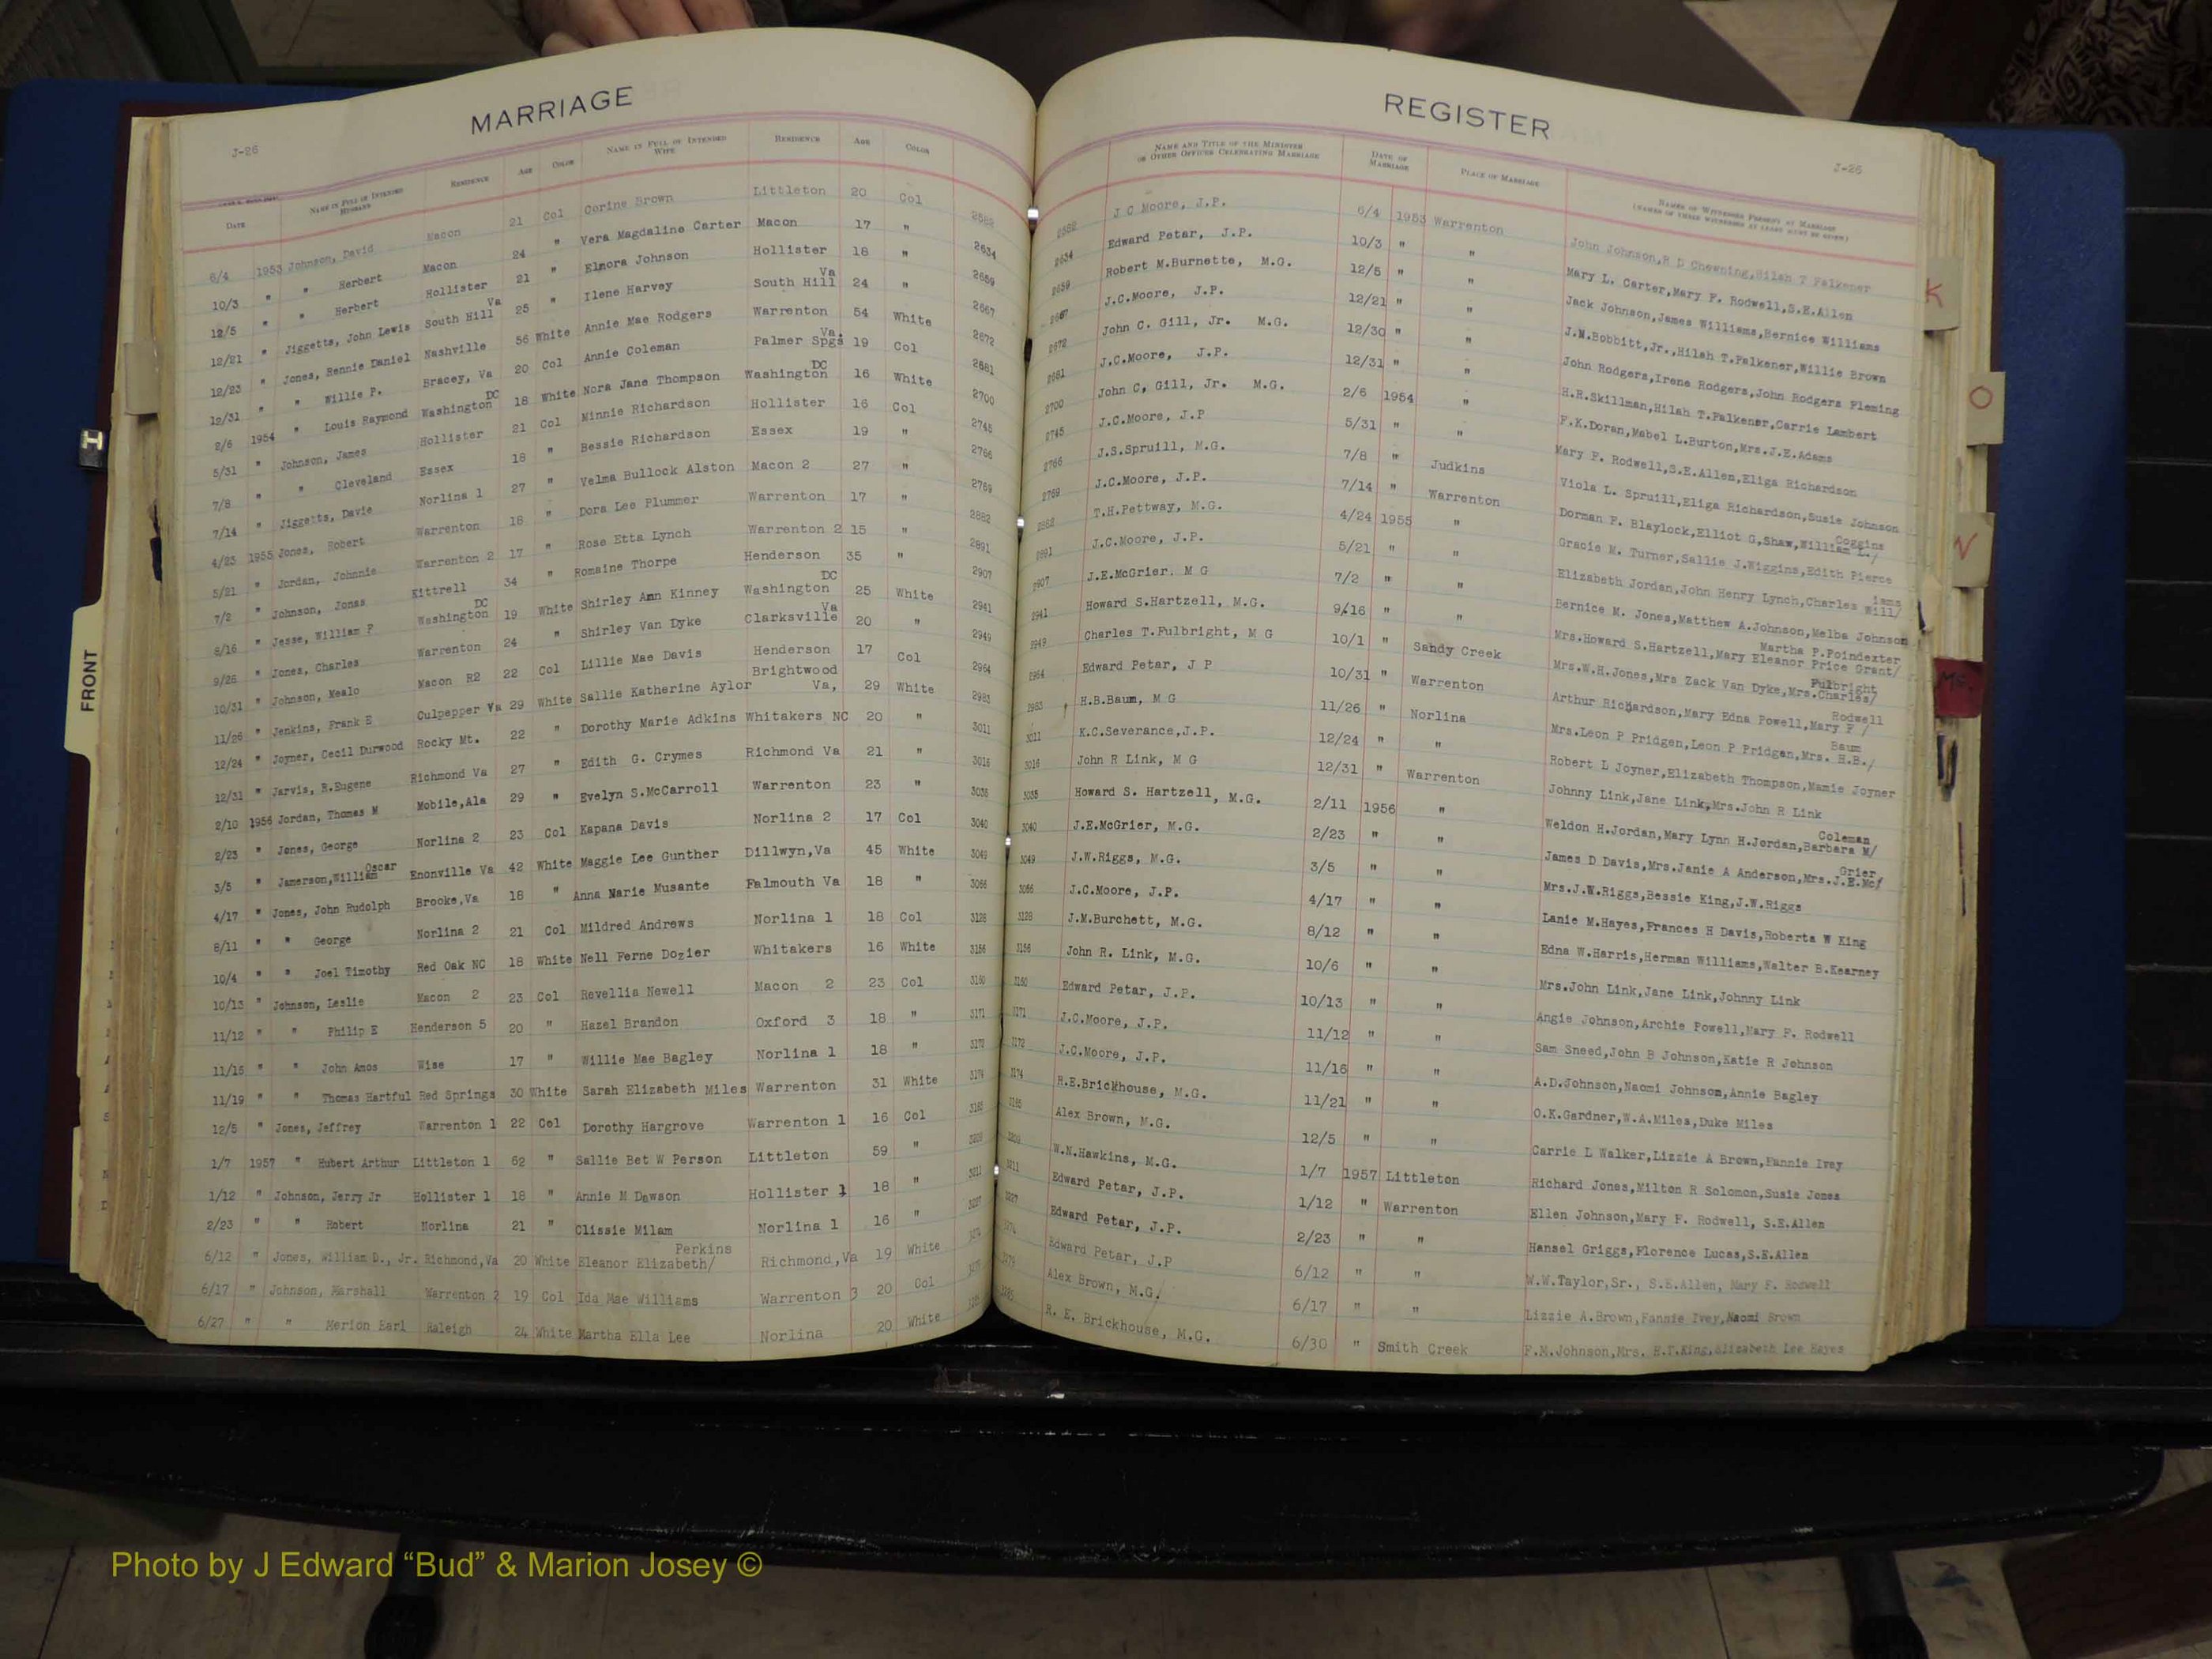 MARRIAGE
J-26
DATE NAME IN FULL OF INTENDED HUSBAND RESIDENCE AGE COLOR NAME IN FULL OF INTENDED WIFE RESIDENCE AGE COLOR
6/4 1953 Johnson, David Macon 21 Col Corine Brown Littleton 20 Col 2582
10/3 " " Herbert Macon 24 " Vera Magdaline Carter Macon 17 " 2634
12/5 " " Herbert Hollister 21 " Elnora Johnson Hollister 18 " 2659
12/21 " Jiggetts, John Lewis South Hill Va 25 " Ilene Harvey South Hill Va 24 " 2667
12/23 " Jones, Rennie Daniel Nashville 56 White Annie Mae Rodgers Warrenton 54 White 2672
12/31 " " Willie P. Bracey, Va 20 Col Annie Coleman Palmer Spgs Va. 19 Col 2681
2/6 1954 " Louis Raymond Washington DC 18 White Nora Jane Thompson Washington DC 16 White 2700
5/31 " Johnson, James Hollister 21 Col Minnie Richardson Hollister 16 Col 2745
7/8 " " Cleveland Essex 18 " Bessie Richardson Essex 19 " 2766
7/14 " Jiggetts, Davie Norlina 1 27 " Velma Bullock Alston Macon 2 27 " 2769
4/23 1955 Jones, Robert Warrenton 18 " Dora Lee Plummer Warrenton 17 " 2882
5/21 " Jordan, Johnnie Warrenton 2 17 " Rose Etta Lynch Warrenton 2 15 " 2891
7/2 " Johnson, Jonas Kittrell 34 " Romaine Thorpe Henderson 35 " 2907
8/16 " Jesse, William P Washington DC 19 White Shirley Ann Kinney Washington DC 25 White 2941
9/26 " Jones, Charles Warrenton 24 " Shirley Van Dyke Clarksville Va 20 " 2949
10/31 " Johnson, Mealo Macon R2 22 Col Lillie Mae Davis Henderson 17 Col 2964
11/26 " Jenkins, Frank E Culpepper Va 29 White Sallie Katherine Aylor Brightwood Va, 29 White 2983
12/24 " Joyner, Cecil Durwood Rocky Mt. 22 " Dorothy Marie Adkins Whitakers NC 20 " 3011
12/31 " Jarvis, R.Eugene Richmond Va 27 " Edith G. Crymes Richmond Va 21 " 3016
2/10 1956 Jordan, Thomas M Mobile,Ala 29 " Evelyn S.McCarroll Warrenton 23 " 3035
2/23 " Jones, George Norlina 2 23 Col Kapana Davis Norlina 2 17 Col 3040
3/5 " Jamerson,William Oscar Enonville Va 42 White Maggie Lee Gunther Dillwyn,Va 45 White 3049
4/17 " Jones, John Rudolph Brooke,Va 18 " Anna Marie Musante Falmouth Va 18 " 3066
8/11 " " George Norlina 2 21 Col Mildred Andrews Norlina 1 18 Col 3128
10/4 " " Joel Timothy Red Oak NC 18 White Nell Ferne Dozier Whitakers 16 White 3156
10/13 " Johnson, Leslie Macon 2 23 Col Revellia Newell Macon 2 23 Col 3160
11/12 " " Philip E Henderson 5 20 " Hazel Brandon Oxford 3 18 " 3171
11/15 " " John Amos Wise 17 " Willie Mae Bagley Norlina 1 18 " 3172
11/19 " " Thomas Hartful Red Springs 30 White Sarah Elizabeth Miles Warrenton 31 White 3174
12/5 " Jones, Jeffrey Warrenton 1 22 Col Dorothy Hargrove Warrenton 1 16 Col
1/7 1957 " Hubert Arthur Littleton 1 62 " Sallie Bet W Person Littleton 59 "
1/12 " Johnson, Jerry Jr Hollister 1 18 " Annie M Dawson Hollister 1 18 "
2/23 " " Robert Norlina 21 " Clissie Milam Norlina 1 16 "
6/12 " Jones, William D., Jr. Richmond,Va 20 White Eleanor Elizabeth/ Perkins Richmond,Va 19 White
6/17 " Johnson, Marshall Warrenton 2 19 Col Ida Mae Williams Warrenton 3 20 Col
6/27 " " Merion Earl Raleigh 24 White Martha Ella Lee Norlina 20 White
REGISTER
J-26
NAME AND TITLE OF THE MINISTER OR OTHER OFFICER CELEBRATING MARRIAGE DATE OF MARRIAGE PLACE OF MARRIAGE NAMES OF WITNESSES PRESENT AT MARRIAGE
2582 J C Moore, J.P. 6/4 1953 Warrenton John Johnson,R D Chewning,Hilah T Falkener
2634 Edward Petar, J.P. 10/3 " " Mary L. Carter,Mary F. Rodwell,S.E.Allen
2659 Robert M.Burnette, M.G. 12/5 " " Jack Johnson,James Williams,Bernice Williams
2667 J.C.Moore, J.P. 12/21 " " J.N.Bobbitt,Jr.,Hilah T.Falkener,Willie Brown
2672 John C. Gill, Jr. M.G. 12/30 " " John Rodgers,Irene Rodgers,John Rodgers Fleming
2681 J.C.Moore, J.P. 12/31 " " H.R.Skillman,Hilah T.Falkener,Carrie Lambert
2700 John C, Gill, Jr. M.G. 2/6 1954 " F.K.Doran,Mabel L.Burton,Mrs.J.E.Adams
2745 J.C.Moore, J.P 5/31 " " Mary F. Rodwell,S.E.Allen,Eliga Richardson
2766 J.S.Spruill, M.G. 7/8 " Judkins Viola L. Spruill,Eliga Richardson,Susie Johnson
2769 J.C.Moore, J.P. 7/14 " Warrenton Dorman F. Blaylock,Elliot G,Shaw,William L./ Coggins
2882 T.H.Pettway, M.G. 4/24 1955 " Gracie M. Turner,Sallie J.Wiggins,Edith Pierce
2891 J.C.Moore, J.P. 5/21 " " Elizabeth Jordan,John Henry Lynch,Charles Will/ iams
2907 J.E.McGrier. M G 7/2 " " Bernice M. Jones,Matthew A.Johnson,Melba Johnson
2941 Howard S.Hartzell, M.G. 9/16 " " Mrs.Howard S.Hartzell,Mary Eleanor Price Grant/ Martha P.Poindexter
2949 Charles T.Fulbright, M G 10/1 " Sandy Creek Mrs.W.H.Jones,Mrs Zack Van Dyke,Mrs.Charles/ Fulbright
2964 Edward Petar, J P 10/31 " Warrenton Arthur Richardson,Mary Edna Powell,Mary F / Rodwell
2983 H.B.Baum, M G 11/26 " Norlina Mrs.Leon P Pridgen,Leon P Pridgen,Mrs. H.B./ Baum
3011 K.C.Severance,J.P. 12/24 " " Robert L Joyner,Elizabeth Thompson,Mamie Joyner
3016 John R Link, M G 12/31 " Warrenton Johnny Link,Jane Link,Mrs.John R Link
3035 Howard S. Hartzell, M.G. 2/11 1956 " Weldon H.Jordan,Mary Lynn H.Jordan,Barbara M/ Coleman
3040 J.E.McGrier, M.G. 2/23 " " James D Davis,Mrs.Janie A Anderson,Mrs.J.E.Mc/ Grier
3049 J.W.Riggs, M.G. 3/5 " " Mrs.J.W.Riggs,Bessie King,J.W.Riggs
3066 J.C.Moore, J.P. 4/17 " " Lanie M.Hayes,Frances H Davis,Roberta W King
3128 J.M.Burchett, M.G. 8/12 " " Edna W.Harris,Herman Williams,Walter B.Kearney
3156 John R. Link, M.G. 10/6 " " Mrs.John Link,Jane Link,Johnny Link
3160 Edward Petar, J.P. 10/13 " " Angie Johnson,Archie Powell,Mary F. Rodwell
3171 J.C.Moore, J.P. 11/12 " " Sam Sneed,John B Johnson,Katie R Johnson
3172 J.C.Moore, J.P. 11/16 " " A.D.Johnson,Naomi Johnson,Annie Bagley
3174 R.E.Brickhouse, M.G. 11/21 " " O.K.Gardner,W.A.Miles,Duke Miles
Alex Brown, M.G. 12/5 " " Carrie L Walker,Lizzie A Brown,Fannie Ivey
W.N.Hawkins, M.G. 1/7 1957 Littleton Richard Jones,Milton R Solomon,Susie Jones
Edward Petar, J.P. 1/12 " Warrenton Ellen Johnson,Mary F. Rodwell, S.E.Allen
Edward Petar, J.P. 2/23 " " Hansel Griggs,Florence Lucas,S.E.Allen
Edward Petar, J.P 6/12 " " W.W.Taylor,Sr., S.E.Allen, Mary F. Rodwell
Alex Brown, M.G. 6/17 " " Lizzie A.Brown,Fannie Ivey,Naomi Brown
R. E. Brickhouse, M.G. 6/30 " Smith Creek F.M.Johnson,Mrs. H.T.King,Elizabeth Lee Hayes
I
FRONT
K
O
N
Mc.
Photo by J Edward “Bud” & Marion Josey ©